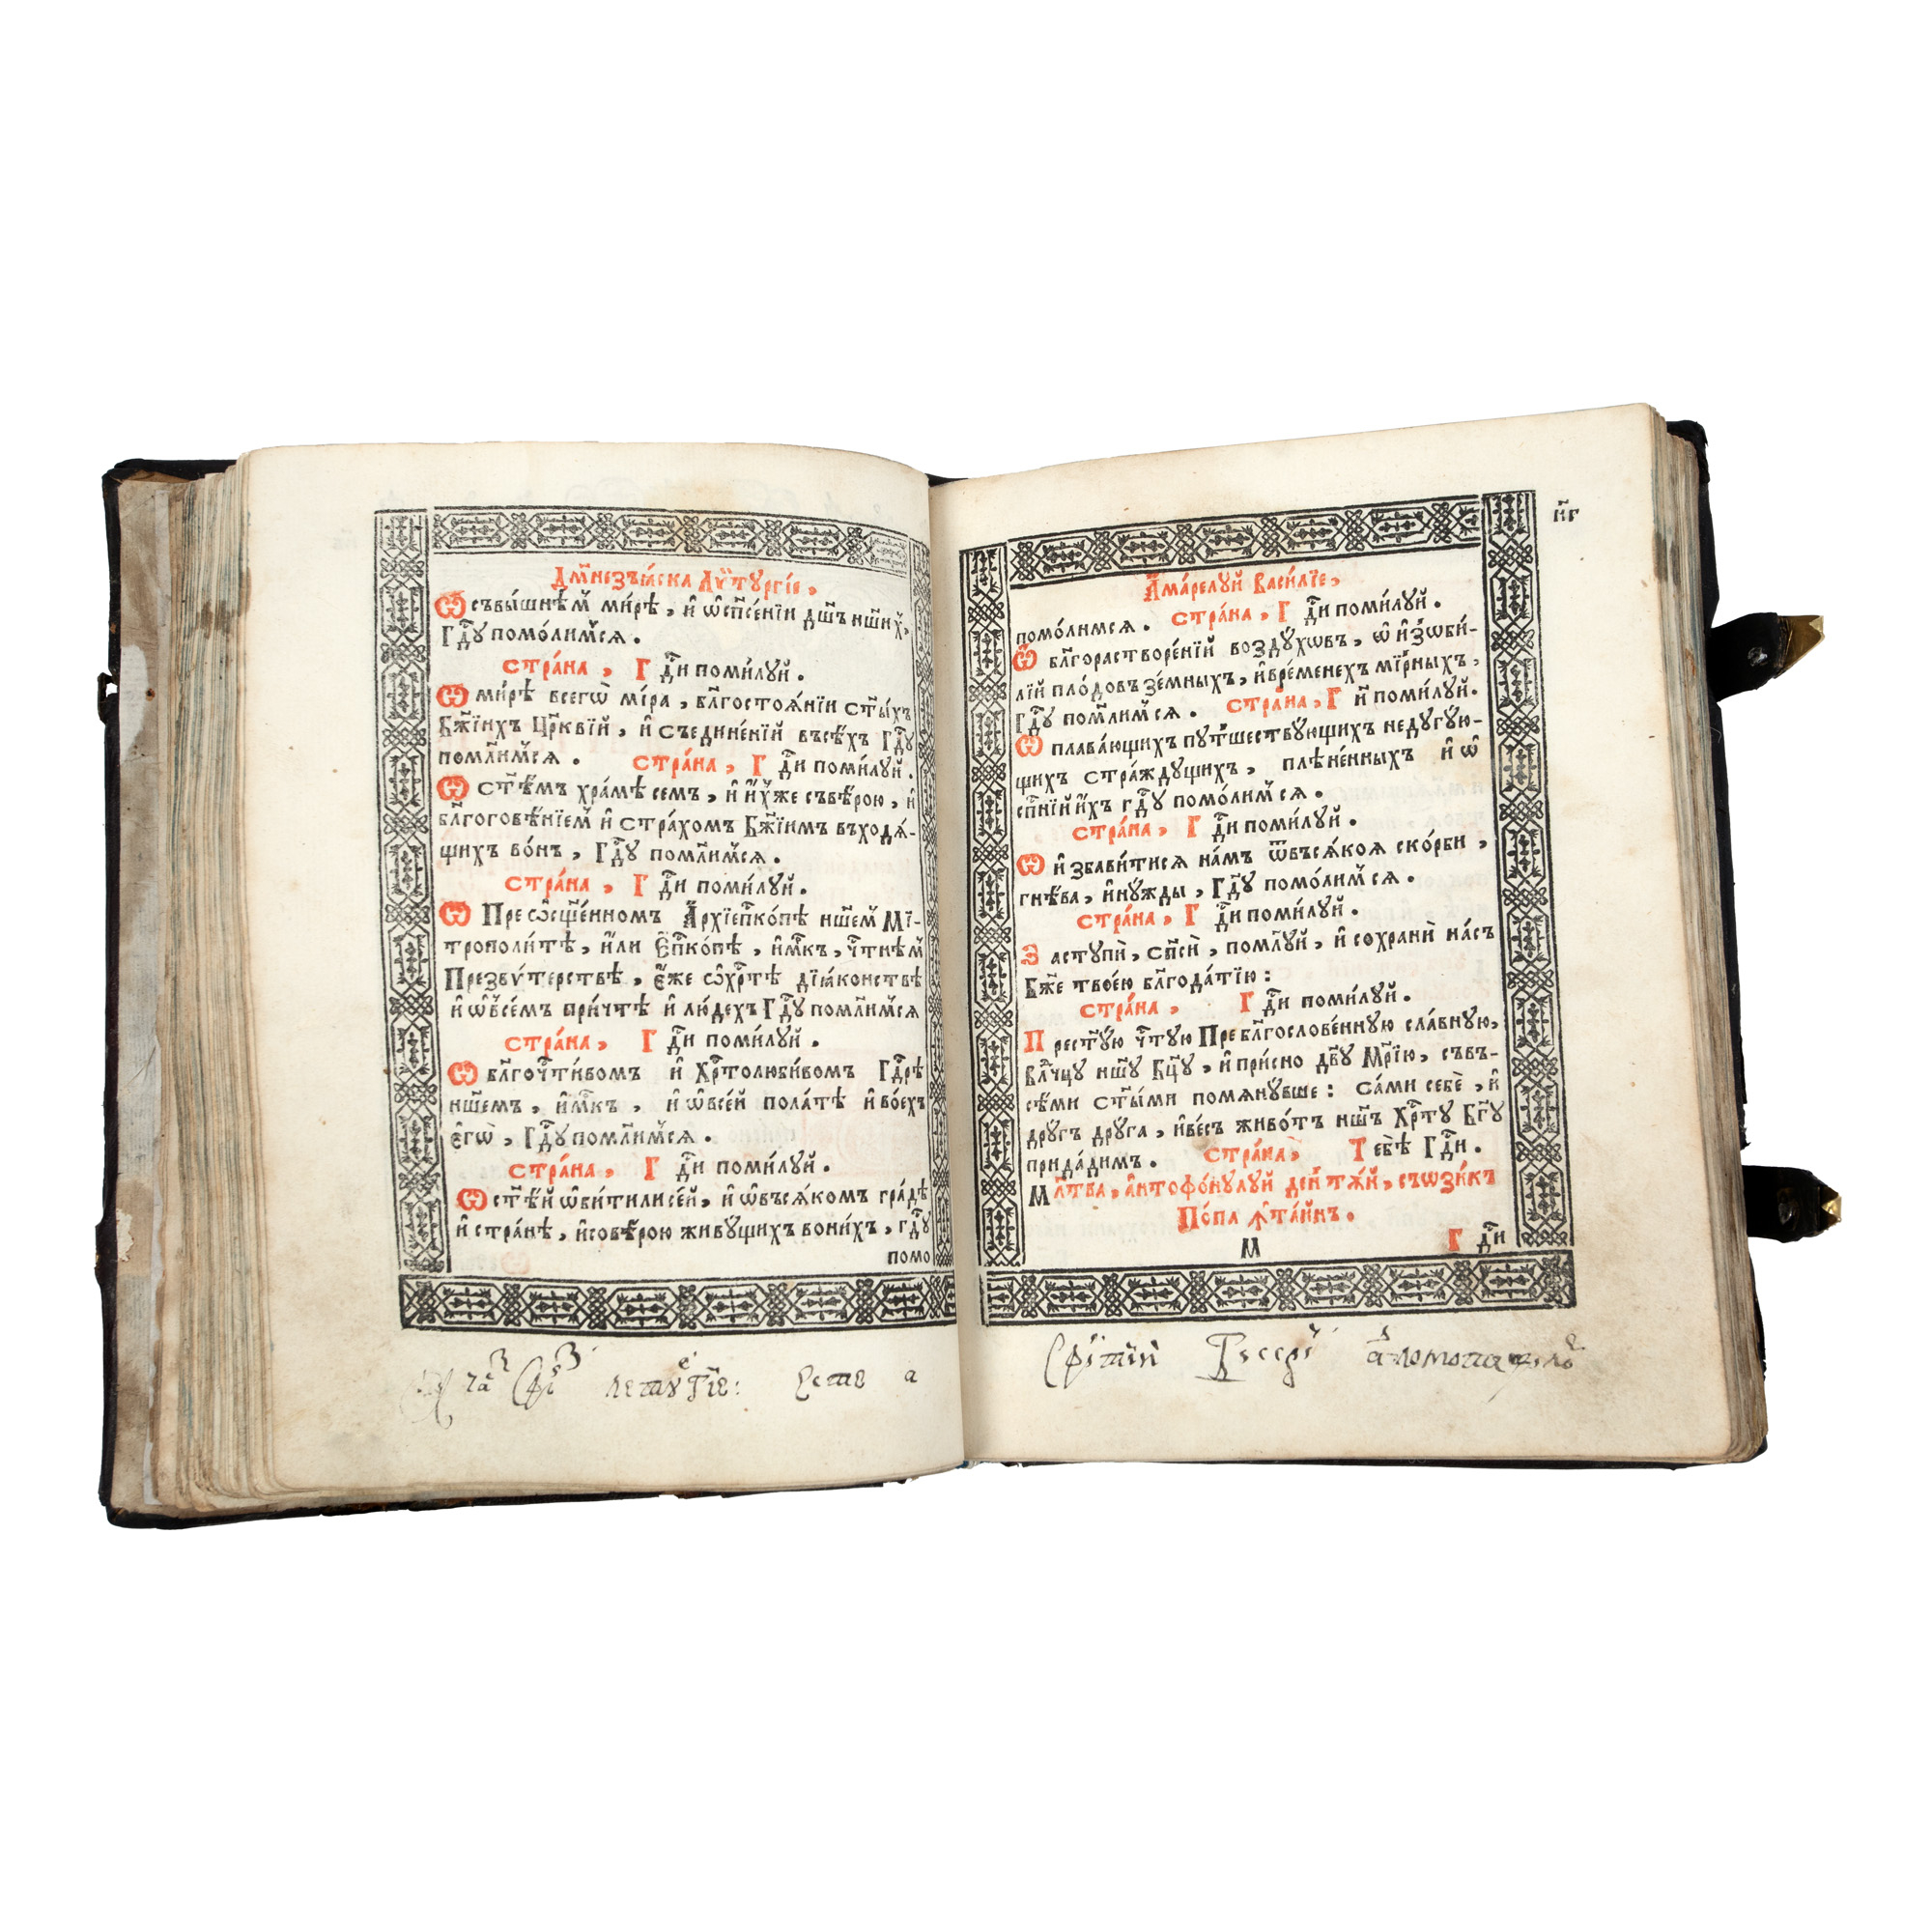 Дм҃незъꙗ́ска Лѷтꙋргі́е,
Ѡ съвы́шнѣм҆ ми́рѣ, и҆ ѡ҆сп҃се́нїи дш҃ъ нш҃их̾,
Гд҃ꙋ помо́лим̾сѧ.
стра́на, Гд҃и поми́лꙋй.
Ѡ ми́рѣ всегѡ̀ мі́ра, бл҃гостоѧ́нїи ст҃ы́хъ
Бж҃їихъ Цр҃квїй, и҆ съедине́нїй въсѣ́хъ Гд҃ꙋ
помл҃им̾сѧ. стра́на, Гд҃и поми́лꙋй.
Ѡ ст҃ѣ́мъ хра́мѣ семъ, и҆ и҆́х̾же съвѣ́рою, и҆
бл҃гоговѣ́нїем̾ и҆ стра́хомъ Бж҃їимъ въходѧ́-
щихъ во́нь, Гд҃ꙋ помл҃им̾сѧ.
стра́на, Гд҃и поми́лꙋй.
Ѡ Пресѡ҃сще́нномъ А҆рхїепⷭ҇ко́пѣ нш҃ем̾ Мї-
трополи́тѣ, и҆́ли Е҆пⷭ҇ко́пѣ, и҆м҃къ, чⷭ҇тнѣм̾
Презвѵ́терствѣ, е҆́же ѡ҆хрⷭ҇тѣ дїа́конствѣ
и҆ ѡ҆ в̾се́мъ при́чтѣ и҆ лю́дехъ Гд҃ꙋ помл҃им̾сѧ
стра́на, Гд҃и поми́лꙋй.
Ѡ бл҃гочⷭ҇ти́вомъ и҆ Хрⷭ҇толюби́вомъ Гд҃рѣ
нш҃емъ, и҆м҃къ, и҆ ѡ҆все́й пола́тѣ и҆ во́ехъ
е҆гѡ̀, Гд҃ꙋ помл҃им̾сѧ.
стра́на, Гд҃и поми́лꙋй.
Ѡ ст҃ѣ́й ѡ҆би́тили се́й, и҆ ѡ҆ въсѧ́комъ гра́дѣ
и҆ стра́нѣ, и҆ совѣ́рою живꙋ́щихъ вони́хъ, гд҃ꙋ
помо
н҃г
А҆ма́релꙋй Васи́лїе,
помо́лимсѧ. стра́на, Гд҃и поми́лꙋй.
Ѡ бл҃горастворе́нїй воздꙋ́хѡвъ, ѡ҆ и҆з̾ѡби́-
лїй пло́довъ зе́мныхъ, и҆ вре́менехъ мі́рныхъ,
Гд҃ꙋ помл҃им̾сѧ. стра́на, Гд҃и поми́лꙋй.
Ѡ плава́ющихъ пꙋт̾шествꙋ́ющихъ недꙋгꙋ́ю-
щихъ стра́ждꙋщихъ, плѣне́нныхъ и҆ ѡ҆
сп҃нїй и҆́хъ гд҃ꙋ помо́лим̾сѧ.
стра́на, Гд҃и поми́лꙋй.
Ѡ и҆збави́тисѧ на́мъ ѿвъсѧ́коѧ ско́рби,
гнѣ́ва, и҆ нꙋ́жды, Гд҃ꙋ помо́лим̾сѧ.
стра́на, Гд҃и поми́лꙋй.
Застꙋпѝ, сп҃сѝ, помл҃ꙋй, и҆ сохранѝ на́съ
Бж҃е твое́ю бл҃года́тїю:
стра́на, Гд҃и поми́лꙋй.
Прест҃ꙋ́ю чⷭ҇тꙋю Пребл҃гослове́ннꙋю сла́внꙋю,
влⷣчцꙋ нш҃ꙋ бц҃ꙋ, и҆ при́сно дв҃ꙋ Мр҃їю, съвъ-
сѣ́ми ст҃ы́ми помѧнꙋ́вше: са́ми себѐ, и҆
дрꙋгъ дрꙋ́га, и҆ ве́сь живо́тъ нш҃ъ Хрⷭ҇тꙋ Бг҃ꙋ
прида́димъ. стра́на, Тебѣ̀ Гд҃и.
Мл҃тва, а҆нтофо́нꙋлꙋй де́и тѧ́й, съѡзи́къ
По́па ꙟ҆та́йнъ.
М Гд҃и